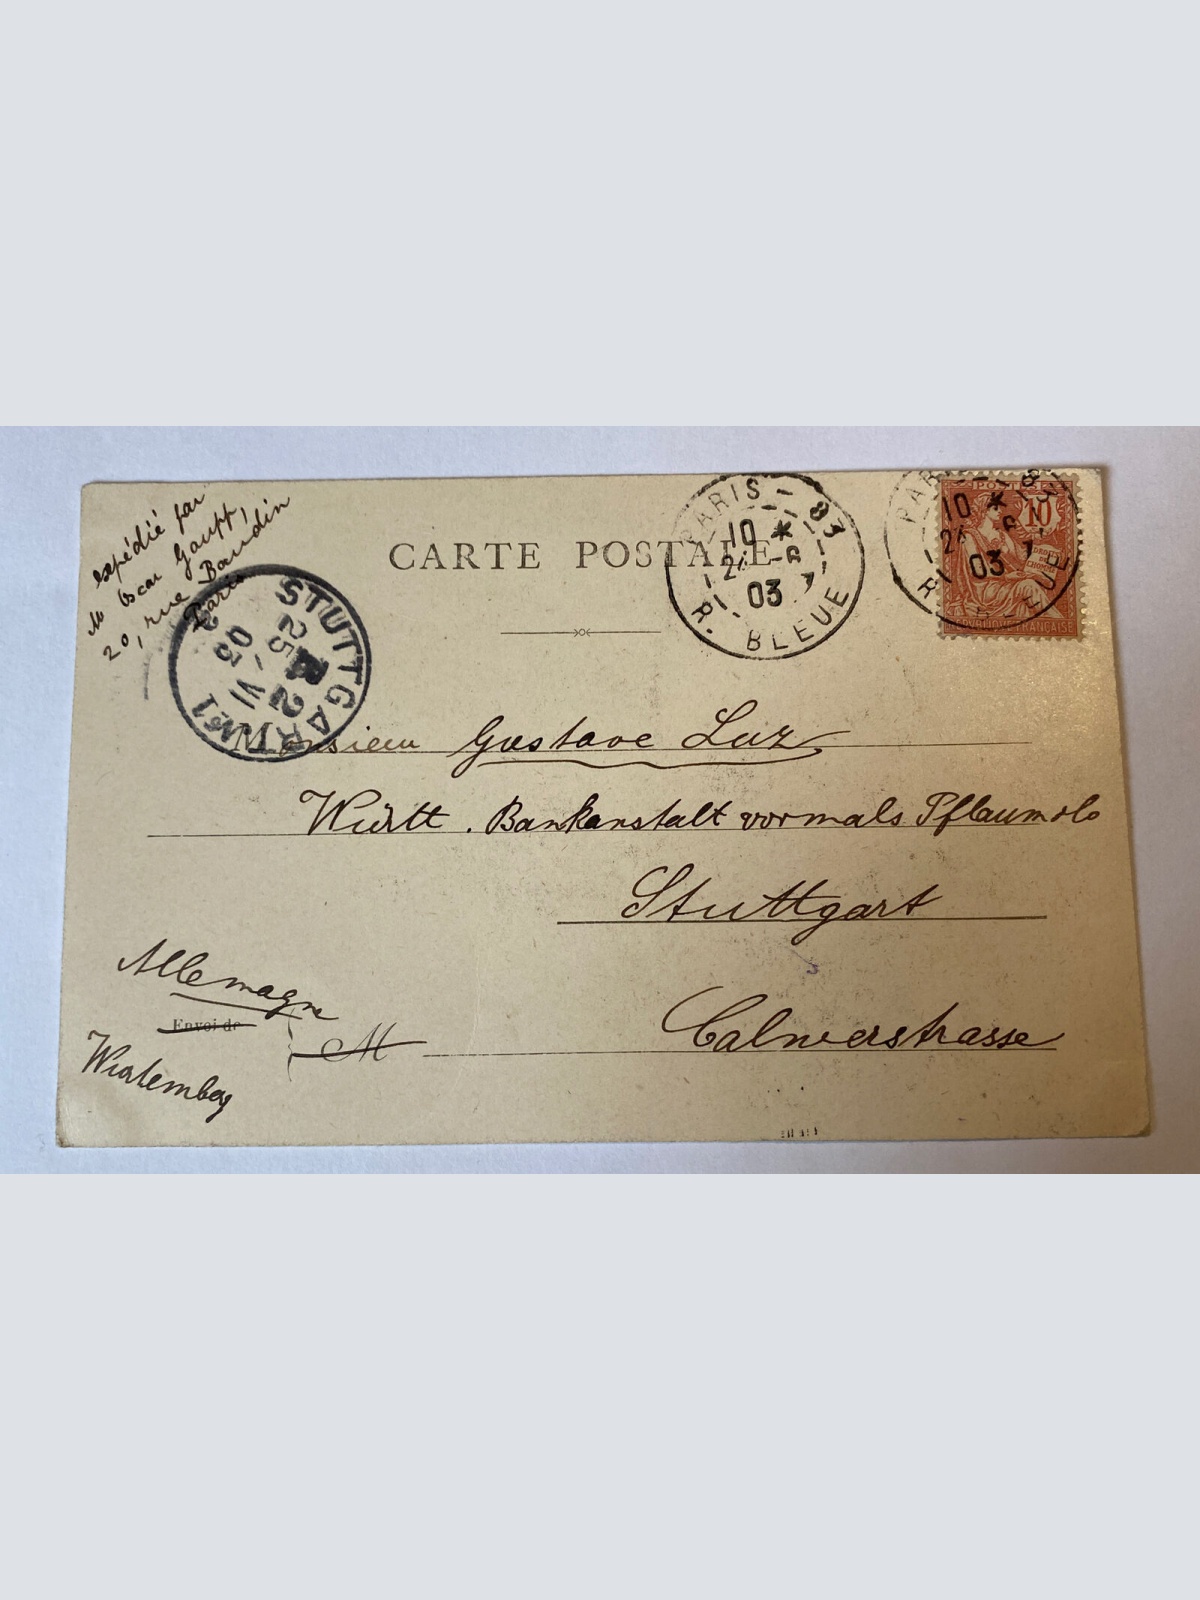 expédié par
M Oscar Gaupp,
20, rue Baudin
Paris
CARTE POSTALE
PARIS - 83
10 *
24 - 6
03
R. BLEUE
PARIS 83
10 *
24 6
03
R. BLEUE
POSTES
10
DROITS
DE
L'HOMME
REPUBLIQUE FRANÇAISE
STUTTGART No1
25 - VI
03
Monsieur Gustave Luz
Württ. Bankanstalt vormals Pflaum & Co
Stuttgart
Calwerstrasse
Allemagne
Envoi de
M
Wurtemberg